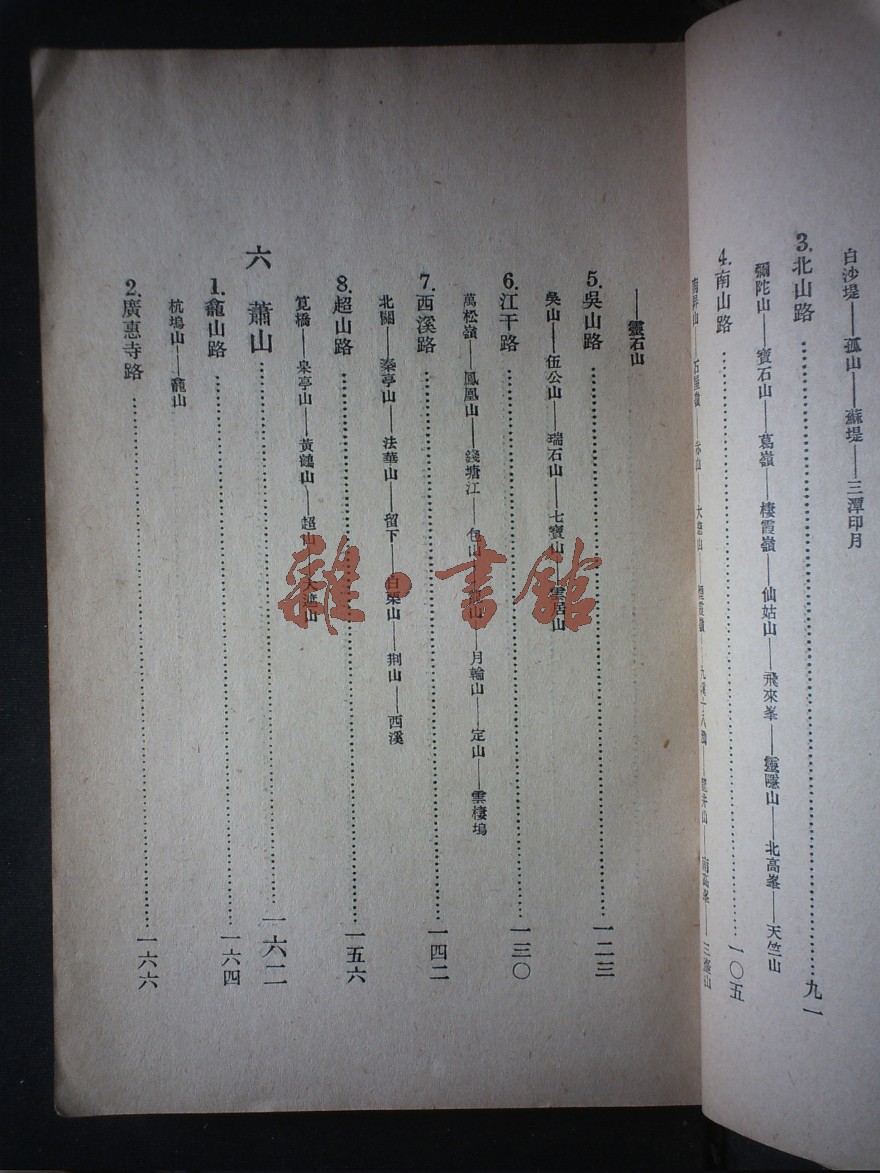 白沙堤——孤山——蘇堤——三潭印月
3.北山路……九一
彌陀山——寶石山——葛嶺——棲霞嶺——仙姑山——飛來峯——靈隱山——北高峯——天竺山
4.南山路……一〇五
南屏山——石屋嶺——赤山——大慈山——煙霞嶺——九溪十八澗——龍井山——南高峯——三台山
——靈石山
5.吳山路……一二三
吳山——伍公山——瑞石山——七寶山——雲居山
6.江干路……一三〇
萬松嶺——鳳凰山——錢塘江——包山——山——月輪山——定山——雲棲塢
7.西溪路……一四二
北關——秦亭山——法華山——留下——白栗山——荆山——西溪
8.超山路……一五六
筧橋——皋亭山——黃鶴山——超山——大遮山
六 蕭山……一六二
1.龕山路……一六四
杭塢山——龕山
2.廣惠寺路……一六六
雜·書館